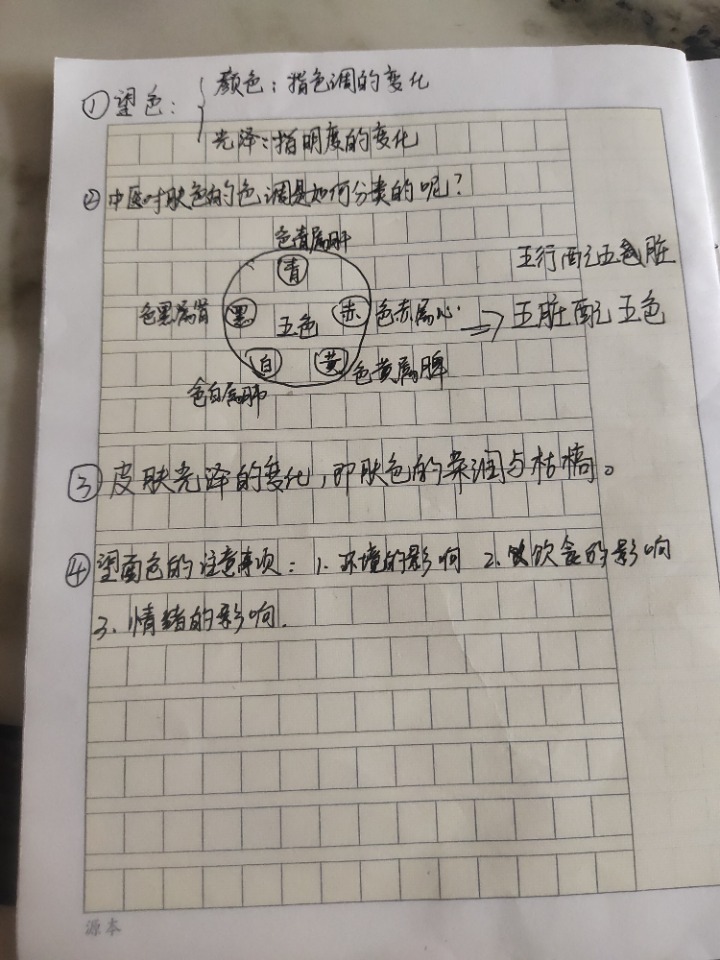 ①望色：{颜色：指色调的变化
光泽：指明度的变化
②中医对肤色的色调是如何分类的呢？
色青属肝
青
五行配五脏
色黑属肾 黑 五色 赤 色赤属心. ⇒ 五脏配五色
白 黄 色黄属脾
色白属肺
③皮肤光泽的变化，即肤色的荣润与枯槁。
④望面色的注意事项：1. 环境的影响 2. 饮食的影响
3. 情绪的影响.
源本